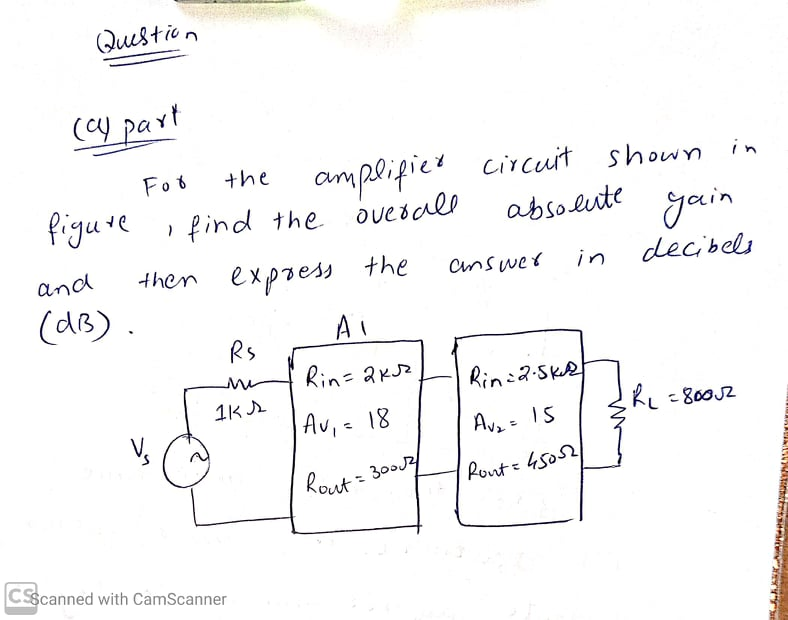 Question
(a) part
For the amplifier circuit shown in
figure , find the overall absolute gain
and then express the answer in decibels
(dB) .
A1
Rs
1KΩ
Vs
Rin = 2KΩ
Av1 = 18
Rout = 300Ω
Rin = 2.5KΩ
Av2 = 15
Rout = 450Ω
RL = 800Ω
CS Scanned with CamScanner